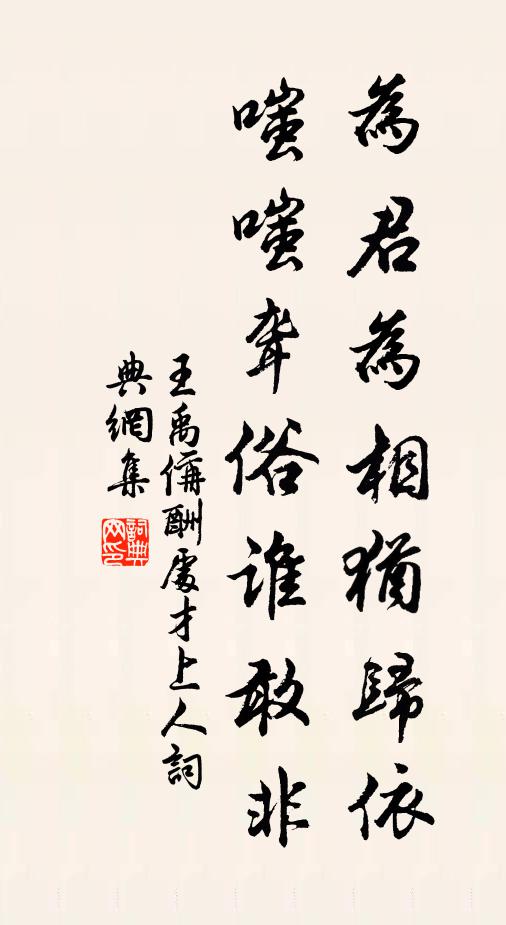 為君為相猶歸依
嗤嗤聾俗誰敢非
王禹偁酬處才上人詞
典網集
詞典網印